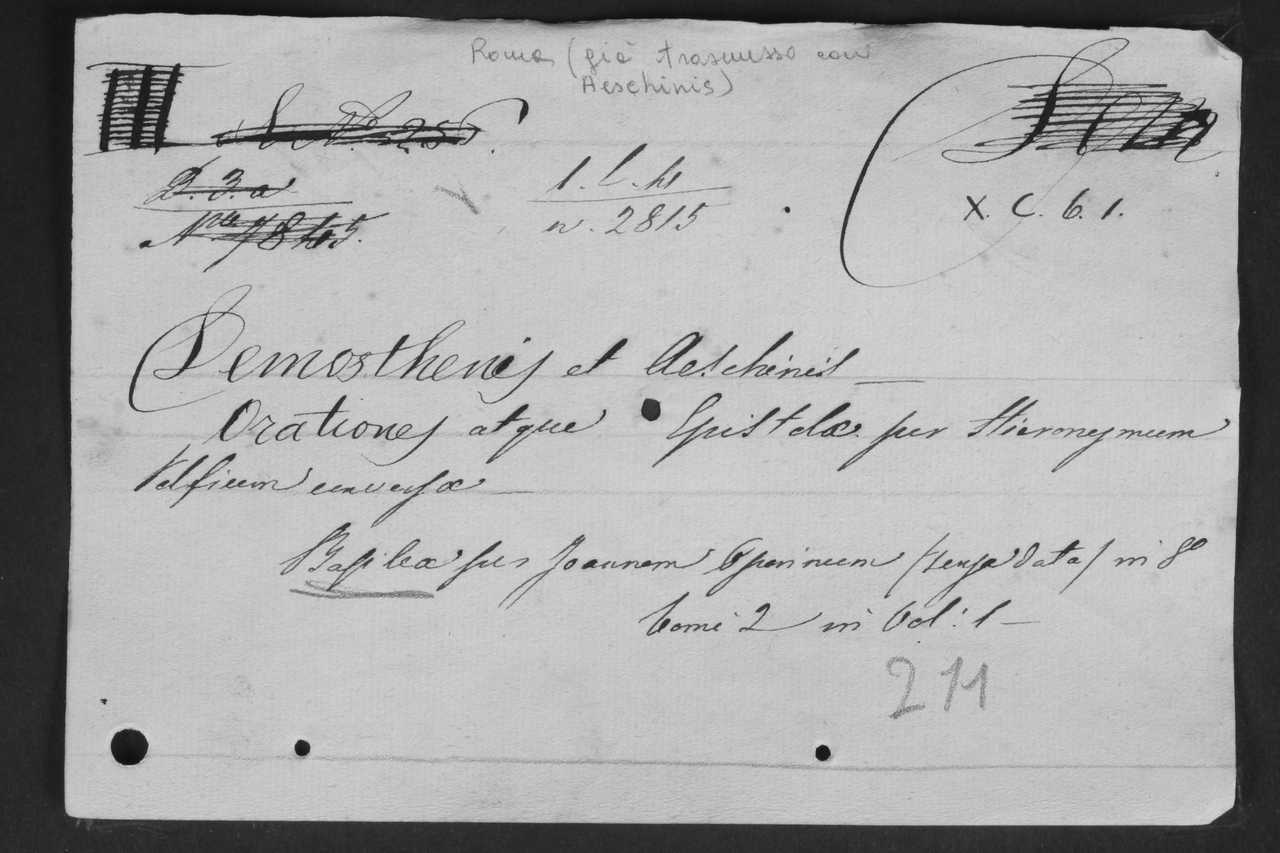 Roma (già trasmesso con
Aeschinis)
B. 3. a
N.ro 7845.
1. L. 41
n. 2815
X. C. 6. 1.
Demosthenis et Aeschinis
Orationes atque Epistolæ per Hieronymum
Volfium conversæ
Basileæ per Joannem Oporinum (senza data) in 8º
tomi 2 in Vol: 1
211